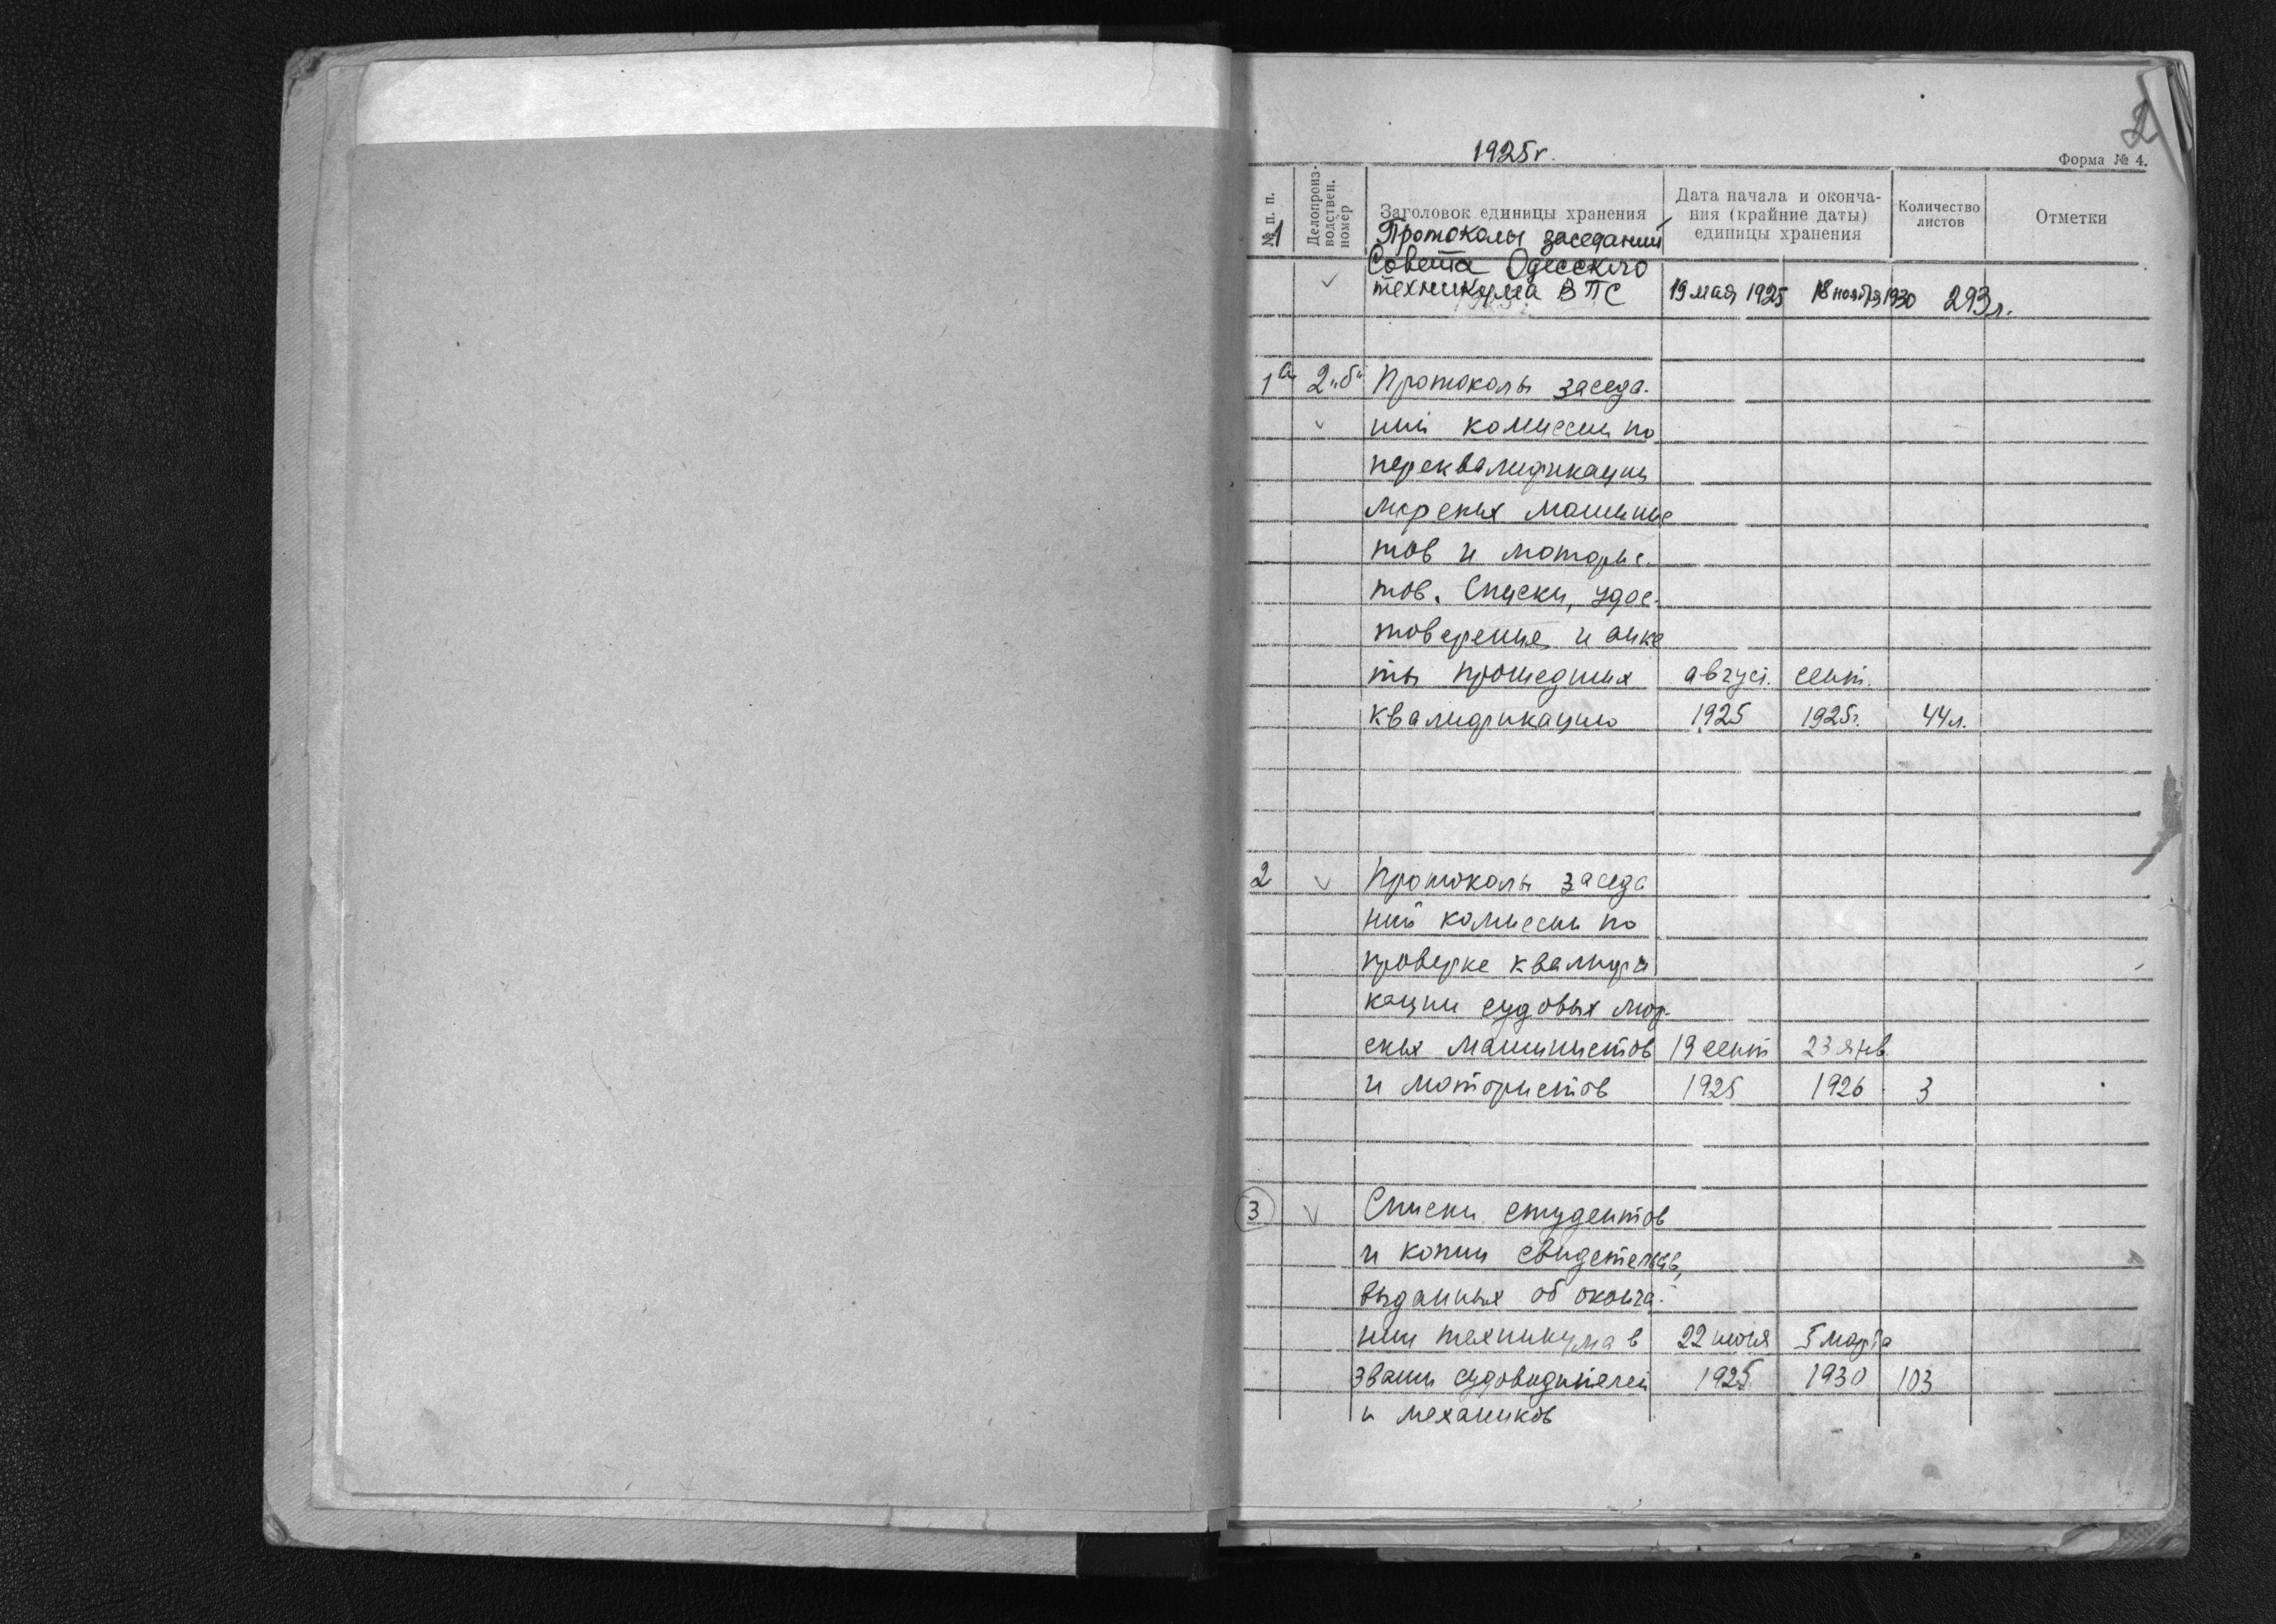 2
1925г.
Форма № 4.
№ п. п.
Делопроиз-
водствен.
номер
Заголовок единицы хранения
Дата начала и оконча-
ния (крайние даты)
единицы хранения
Количество
листов
Отметки
1 Протоколы заседаний
Совета Одесского
техникума ВПС 19 мая 1925 18 ноября 1930 293л.
1а 2„б" Протоколы заседа-
ний комиссии по
переквалификации
морских машинис
тов и моторис-
тов. Списки, удос-
товерения и анке
ты прошедших август. сент.
квалификацию 1925 1925г. 44л.
2 Протоколы заседа
ний комиссии по
проверке квалифи
кации судовых мор-
ских машинистов 19 сент 23 янв.
и мотористов 1925 1926 3
3 Списки студентов
и копии свидетельств,
выданных об оконча-
нии техникума в 22 июля 5 марта
звании судоводителей 1925 1930 103
и механиков